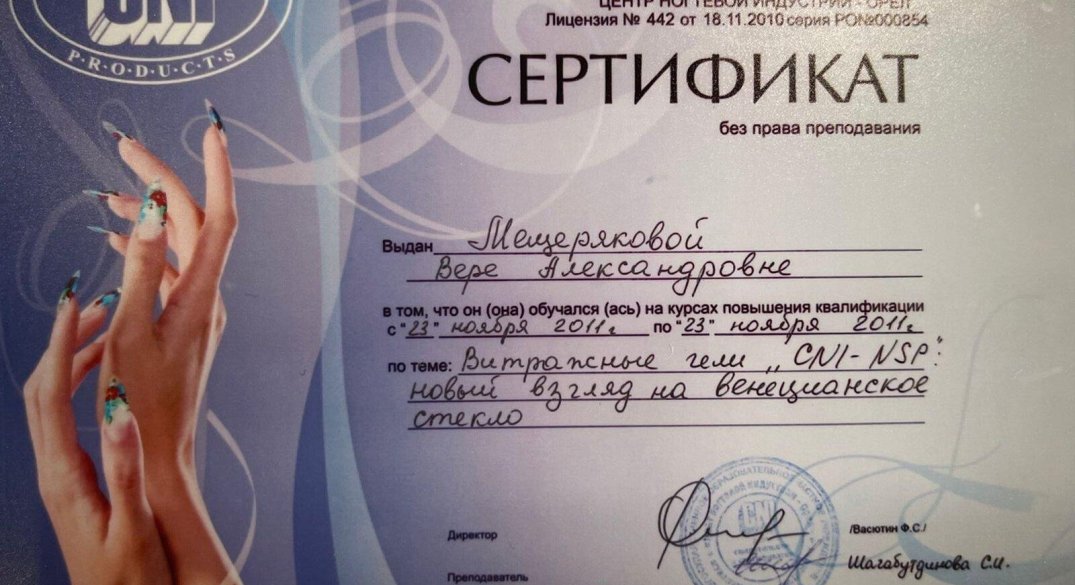 CNI
PRODUCTS
ЦЕНТР НОГТЕВОЙ ИНДУСТРИИ - ОРЕЛ
Лицензия № 442 от 18.11.2010 серия РО№000854
СЕРТИФИКАТ
без права преподавания
Выдан Мещеряковой
Вере Александровне
в том, что он (она) обучался (ась) на курсах повышения квалификации
с "23" ноября 2011г по "23" ноября 2011г
по теме: Витражные гели „CNI-NSP":
новый взгляд на венецианское
стекло
CNI
Директор /Васютин Ф.С./
Преподаватель Шагабутдинова С.И.